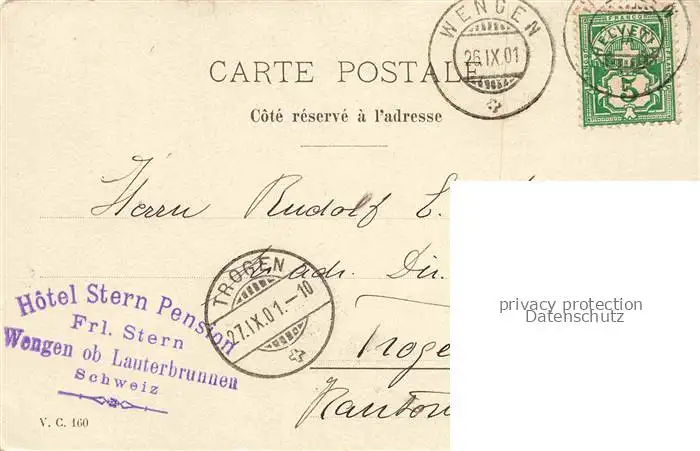 WENGEN
26.IX.01
FRANCO
HELVETIA
5
CARTE POSTALE
Côté réservé à l'adresse
Herrn Rudolf E.
TROGEN
27.IX.01.-10
Dir.
Hôtel Stern Pension
Frl. Stern
Wengen ob Lauterbrunnen
Schweiz
Troge
Kanton
V. C. 160
privacy protection
Datenschutz